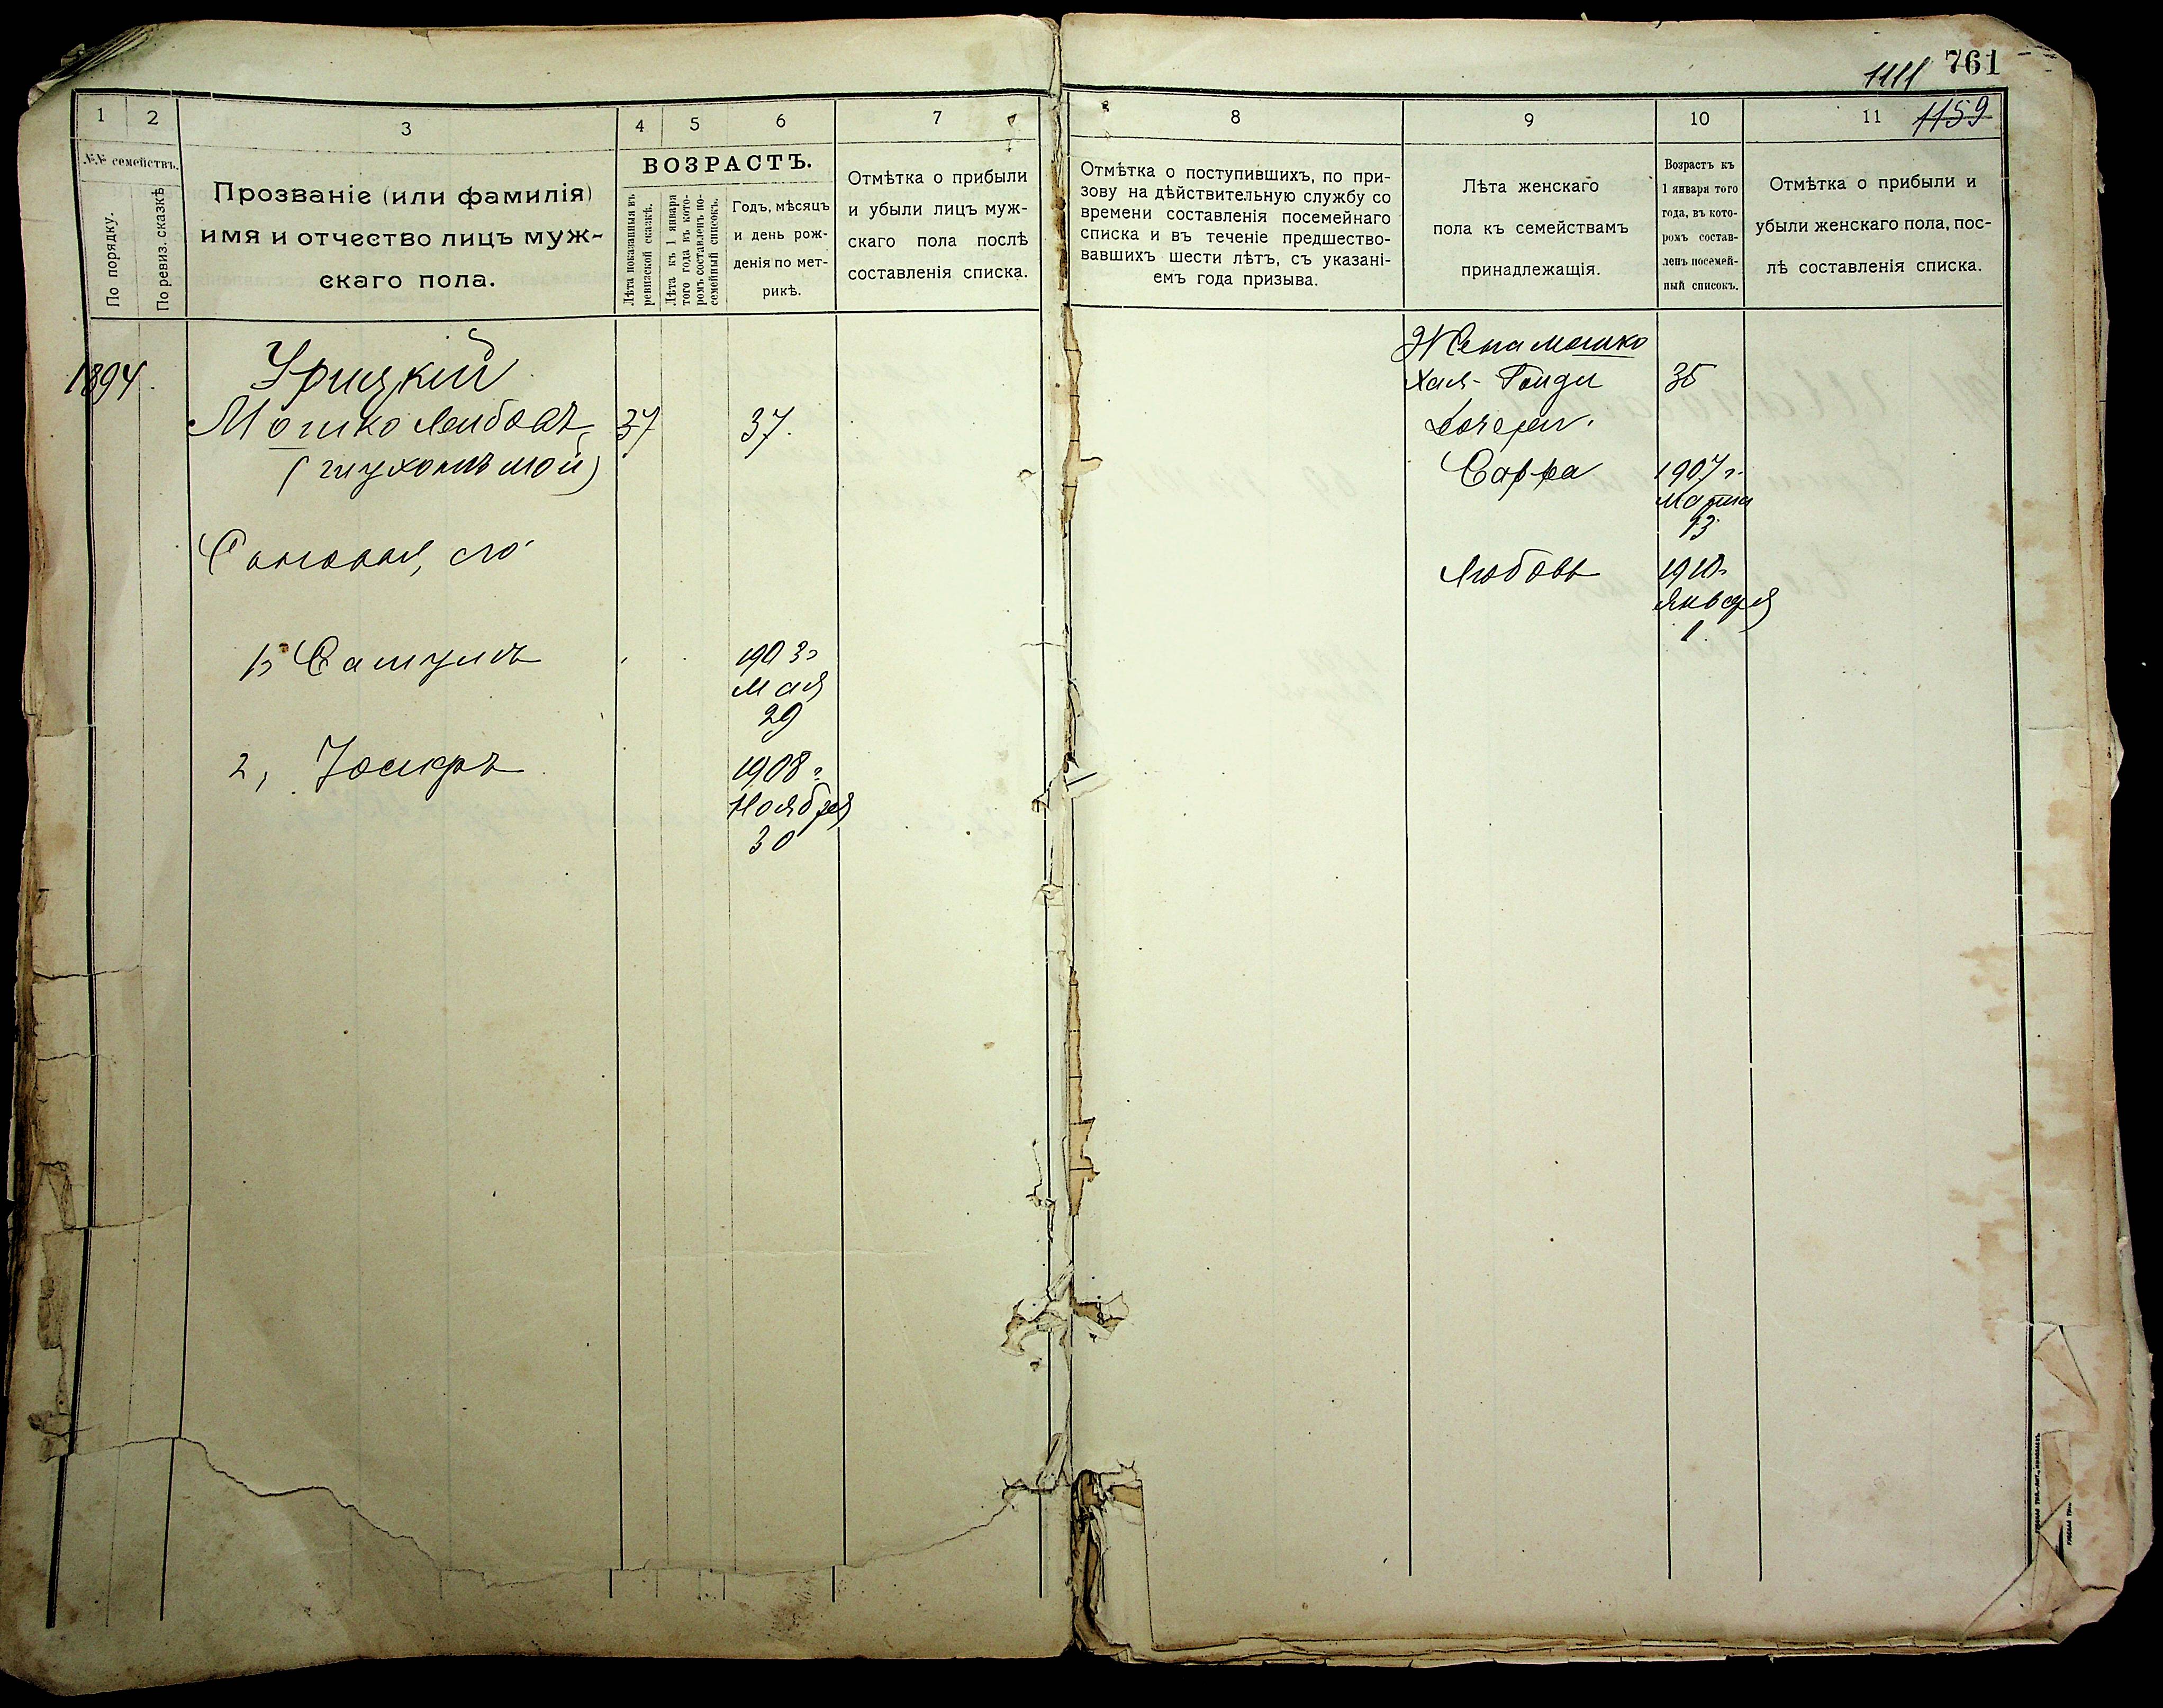 761
1111
1159
1
2
3
4
5
6
7
8
9
10
11
№№ семействъ.
По порядку.
По ревиз. сказкѣ
Прозваніе (или фамилія)
имя и отчество лицъ муж-
скаго пола.
ВОЗРАСТЪ.
Лѣта показанныя въ
ревизской сказкѣ.
Лѣта къ 1 января
того года въ кото-
ромъ составленъ по-
семейный списокъ.
Годъ, мѣсяцъ
и день рож-
денія по мет-
рикѣ.
Отмѣтка о прибыли
и убыли лицъ муж-
скаго пола послѣ
составленія списка.
Отмѣтка о поступившихъ, по при-
зову на дѣйствительную службу со
времени составленія посемейнаго
списка и въ теченіе предшество-
вавшихъ шести лѣтъ, съ указані-
емъ года призыва.
Лѣта женскаго
пола къ семействамъ
принадлежащія.
Возрастъ къ
1 января того
года, въ кото-
ромъ состав-
ленъ посемей-
ный списокъ.
Отмѣтка о прибыли и
убыли женскаго пола, пос-
лѣ составленія списка.
1894.
Урицкій
Мошко Лейбовъ 37 37.
(глухонѣмой)
Сыновья его
1, Самуилъ 1903 г
Мая
29
2, Іосифъ 1908 г
Ноября
30
Жена Мошко
Хая- 35
Дочери.
Сарра 1907 г.
Марта
13
Любовь 1910 г
Января
1.